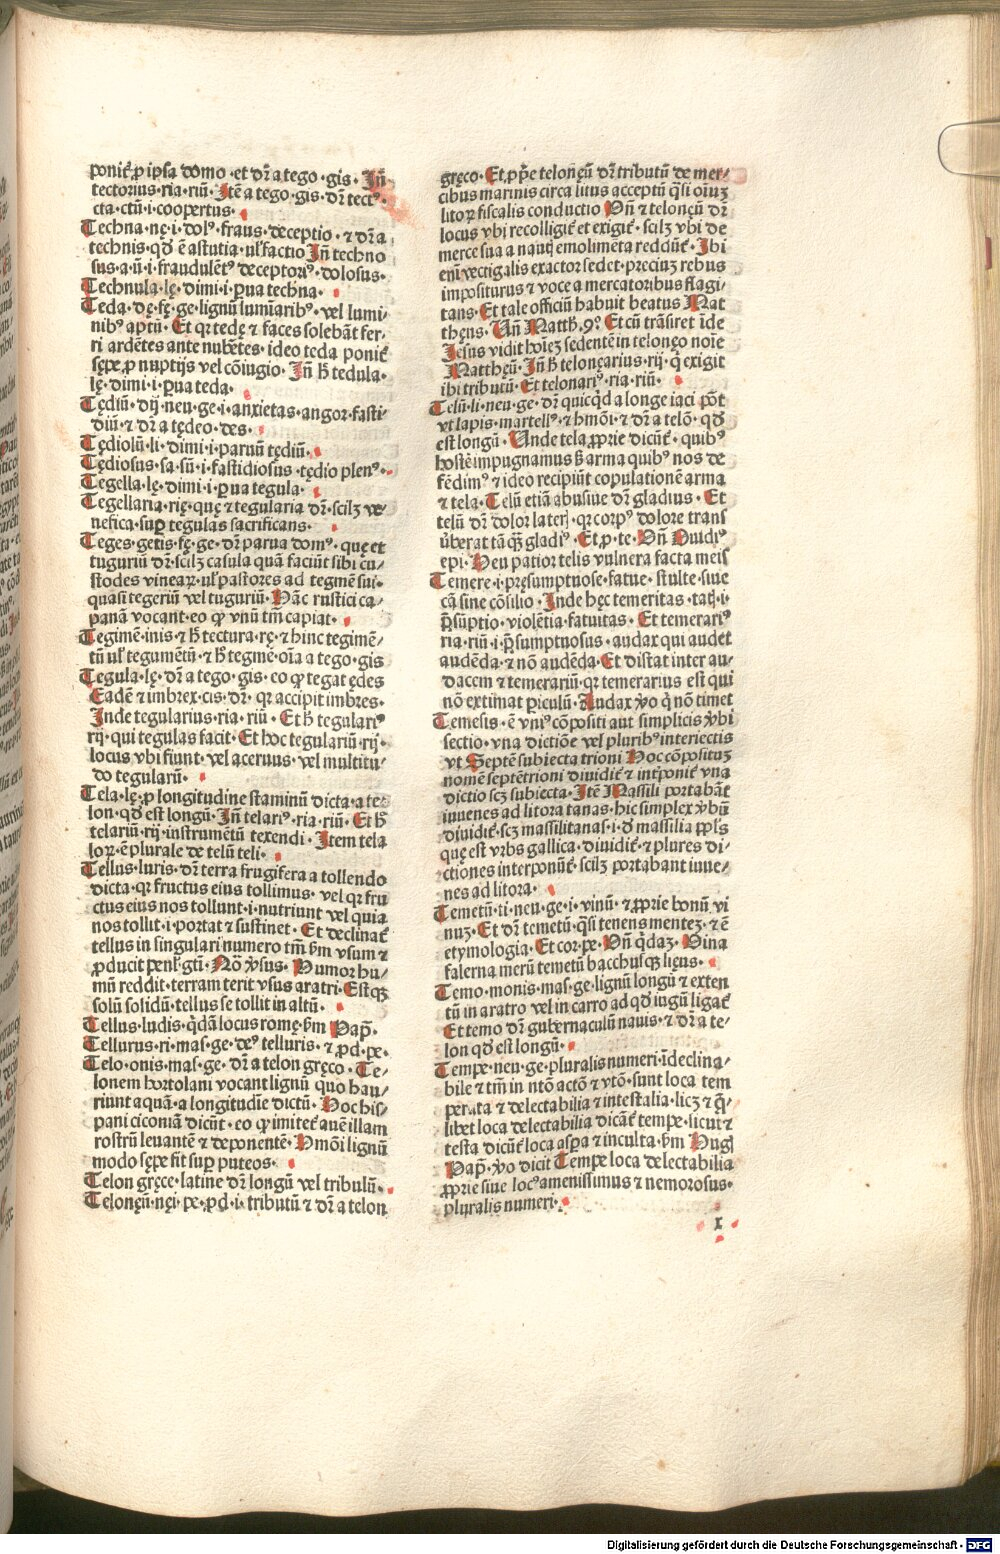 ponit᷑ ꝓ ipſa domo ·et dr̄ a tego ·gis· Jn̄
tectorius·ria·riū· Jtē a tego·gis·dr̄ tectꝰ·
cta·ctū·i·coopertus·
Techna·nę·i·dolꝰ·fraus·deceptio·⁊ dr̄ a
technis·qd̄ ē aſtutia·ul᷑ factio Jn̄ techno
ſus·a·ū·i·fraudulētꝰ deceptoriꝰ·doloſus·
Technula·lę·dimi·i·ꝑua techna·
Teda·dę·fę·ge·lignū lumīaribꝰ·vel lumi-
nibꝰ aptū· Et qr tedę ⁊ faces ſolebāt fer-
ri ardētes ante nubētes·ideo teda ponit᷑
ſępe ꝓ nuptijs vel cōiugio· Jn̄ h̄ tedula·
lę·dimi·i·ꝑua teda·
Tędiū·dij·neu·ge·i·anxietas·angor·faſti-
diū·⁊ dr̄ a tędeo·des·
Tędiolū·li·dimi·i·paruū tędiū·
Tędioſus·ſa·ſū·i·faſtidioſus·tędio plenꝰ·
Tegella·lę·dimi·i·ꝑua tegula·
Tegellaria·rię·quę ⁊ tegularia dr̄·ſcilꝫ ve-
nefica·ſuꝑ tegulas ſacrificans·
Teges·getis·fę·ge·dr̄ parua domꝰ·quę et
tuguriū dr̄·ſcilꝫ caſula quā faciūt ſibi cu-
ſtodes vineaꝝ·ul᷑ paſtores ad tegmē ſui·
quaſi tegeriū vel tuguriū· Hāc ruſtici ca-
panā vocant·eo ꝙ vnū tm̄ capiat·
Tegimē·inis·⁊ h̄ tectura·rę·⁊ hinc tegimē-
tū ul᷑ tegumētū·⁊ h̄ tegmē·oīa a tego·gis
Tegula·lę·dr̄ a tego·gis·eo ꝙ tegat ędes
Eadē ⁊ imbrex·cis·dr̄·qr accipit imbres·
Jnde tegularius·ria·riū· Et h̄ tegulariꝰ
rij·qui tegulas facit·Et hoc tegulariū·rij·
locus vbi fiunt·vel aceruus·vel multitu-
do tegularū·
Tela·lę·ꝓ longitudine ſtaminū dicta·a te-
lon·qd̄ eſt longū· Jn̄ telariꝰ·ria·riū· Et h̄
telariū·rij·inſtrumētū texendi· Jtem tela
loꝝ·ē plurale de telū teli·
Tellus·luris·dr̄ terra frugifera a tollendo
dicta·qr fructus eius tollimus·vel qr fru
ctus eius nos tollunt·i·nutriunt vel quia
nos tollit·i·portat ⁊ ſuſtinet· Et declinat᷑
tellus in ſingulari numero tm̄ ẜm vſum ⁊
ꝓducit penl᷑·gti· Nō ꝟſus· Humor hu-
mū reddit·terram terit vſus aratri·Eſtqꝫ
ſolū ſolidū·tellus ſe tollit in altū·
Tellus·ludis·qd̄ā locus romę·ẜm Pap̄·
Tellurus·ri·maſ·ge·deꝰ telluris·⁊ ꝓd·pe·
Telo·onis·maſ·ge·dr̄ a telon gręco· Te-
lonem hortolani vocant lignū quo hau-
riunt aquā·a longitudīe dictū· Hoc hiſ-
pani ciconiā dicūt·eo ꝙ imitet᷑ auē illam
roſtrū leuantē ⁊ deponentē· Hmōi lignū
modo ſępe fit ſuꝑ puteos·
Telon gręce·latine dr̄ longū vel tribulū·
Telonęū·nęi·pe·ꝓd·i·tributū ⁊ dr̄ a telon
gręco· Et ꝓpe telonęū dr̄ tributū de mer-
cibus marinis circa litus acceptū q̄ſi oīuꝫ
litoꝝ fiſcalis conductio Vn̄ ⁊ telonęū dr̄
locus vbi recolligit᷑ et exigit᷑·ſcilꝫ vbi de
merce ſua a nautꝭ emolimēta reddūt᷑· Jbi
eni vectigalis exactor ſedet·preciuꝫ rebus
impoſiturus ⁊ voce a mercatoribus flagi-
tans· Et tale officiū habuit beatus Mat
thęus· Vn̄ Matth·9ꝰ· Et cū trāſiret īde
Jeſus vidit hoīeꝫ ſedentē in telonęo noīe
Matthęū· Jn̄ h̄ telonęarius·rij·q̄ exigit
ibi tributū· Et telonariꝰ·ria·riū·
Telū·li·neu·ge·dr̄ quicqͥd a longe iaci pōt
vt lapis·martellꝰ·⁊ hmōi·⁊ dr̄ a telō·qd̄
eſt longū· Vnde tela ꝓprie dicūt᷑·quibꝰ
hoſtē impugnamus ſꝫ arma quibꝰ nos de
fēdimꝰ ⁊ ideo recipiūt copulationē arma
⁊ tela· Telū etiā abuſiue dr̄ gladius· Et
telū dr̄ dolor laterꝭ·qr corpꝰ dolore trans
ūberat tāqꝫ gladiꝰ· Et ꝓ·te· Vn̄ Ouidiꝰ
epi· Heu patior telis vulnera facta meis
Temere·i·pręſumptuoſe·fatue·ſtulte·ſiue
cā ſine cōſilio· Jnde hęc temeritas·tatꝭ·i·
p̄ſūptio·violētia·fatuitas· Et temerariꝰ
ria·riū·i·p̄ſumptuoſus·audax qui audet
audēda·⁊ nō audēda· Et diſtat inter au-
dacem ⁊ temerariū·qr temerarius eſt qui
nō extimat ꝑiculū· Audax ꝟo q̄ nō timet
Temeſis·ē vniꝰ cōpoſiti aut ſimplicis ꝟbi
ſectio·vna dictiōe vel pluribꝰ interiectis
vt Septē ſubiecta trioni Hoc cōpoſituꝫ
nomē ſeptētrioni diuidit᷑ ⁊ int̄ponit᷑ vna
dictio ſcꝫ ſubiecta· Jtē Maſſili portabāt
iuuenes ad litora tanas·hic ſimplex ꝟbū
diuidit᷑·ſcꝫ maſſilitanas·i·d̄ maſſilia ꝓpls
quę eſt vrbs gallica·diuidit᷑·⁊ plures di-
ctiones interponūt᷑·ſcilꝫ portabant iuue-
nes ad litora·
Temetū·ti·neu·ge·i·vinū·⁊ ꝓprie bonū vi
nuꝫ· Et dr̄ temetū·q̄ſi tenens menteꝫ·⁊ ē
etymologia·Et cor·pe· Vn̄ q̄daꝫ· Vina
falerna merū temetū bacchuſqꝫ lięus·
Temo·monis·maſ·ge·lignū longū ⁊ exten
tū in aratro vel in carro ad qd̄ iugū ligat᷑
Et temo dr̄ gubernaculū nauis·⁊ dr̄ a te-
lon qd̄ eſt longū·
Tempe·neu·ge·pluralis numeri·īdeclina-
bile ⁊ tm̄ in ntō actō ⁊ vtō·ſunt loca tem
perata ⁊ delectabilia ⁊ inteſtalia·licꝫ ⁊ q̄-
libet loca delectabilia dicāt᷑ tempe·ſicut ⁊
teſta dicūt᷑ loca aſꝑa ⁊ inculta·ẜm Hugꝭ
Pap̄·ꝟo dicit Tempe loca delectabilia
ꝓprie ſiue locꝰ ameniſſimus ⁊ nemoroſus·
pluralis numeri·
x
Digitalisierung gefördert durch die Deutsche Forschungsgemeinschaft - DFG